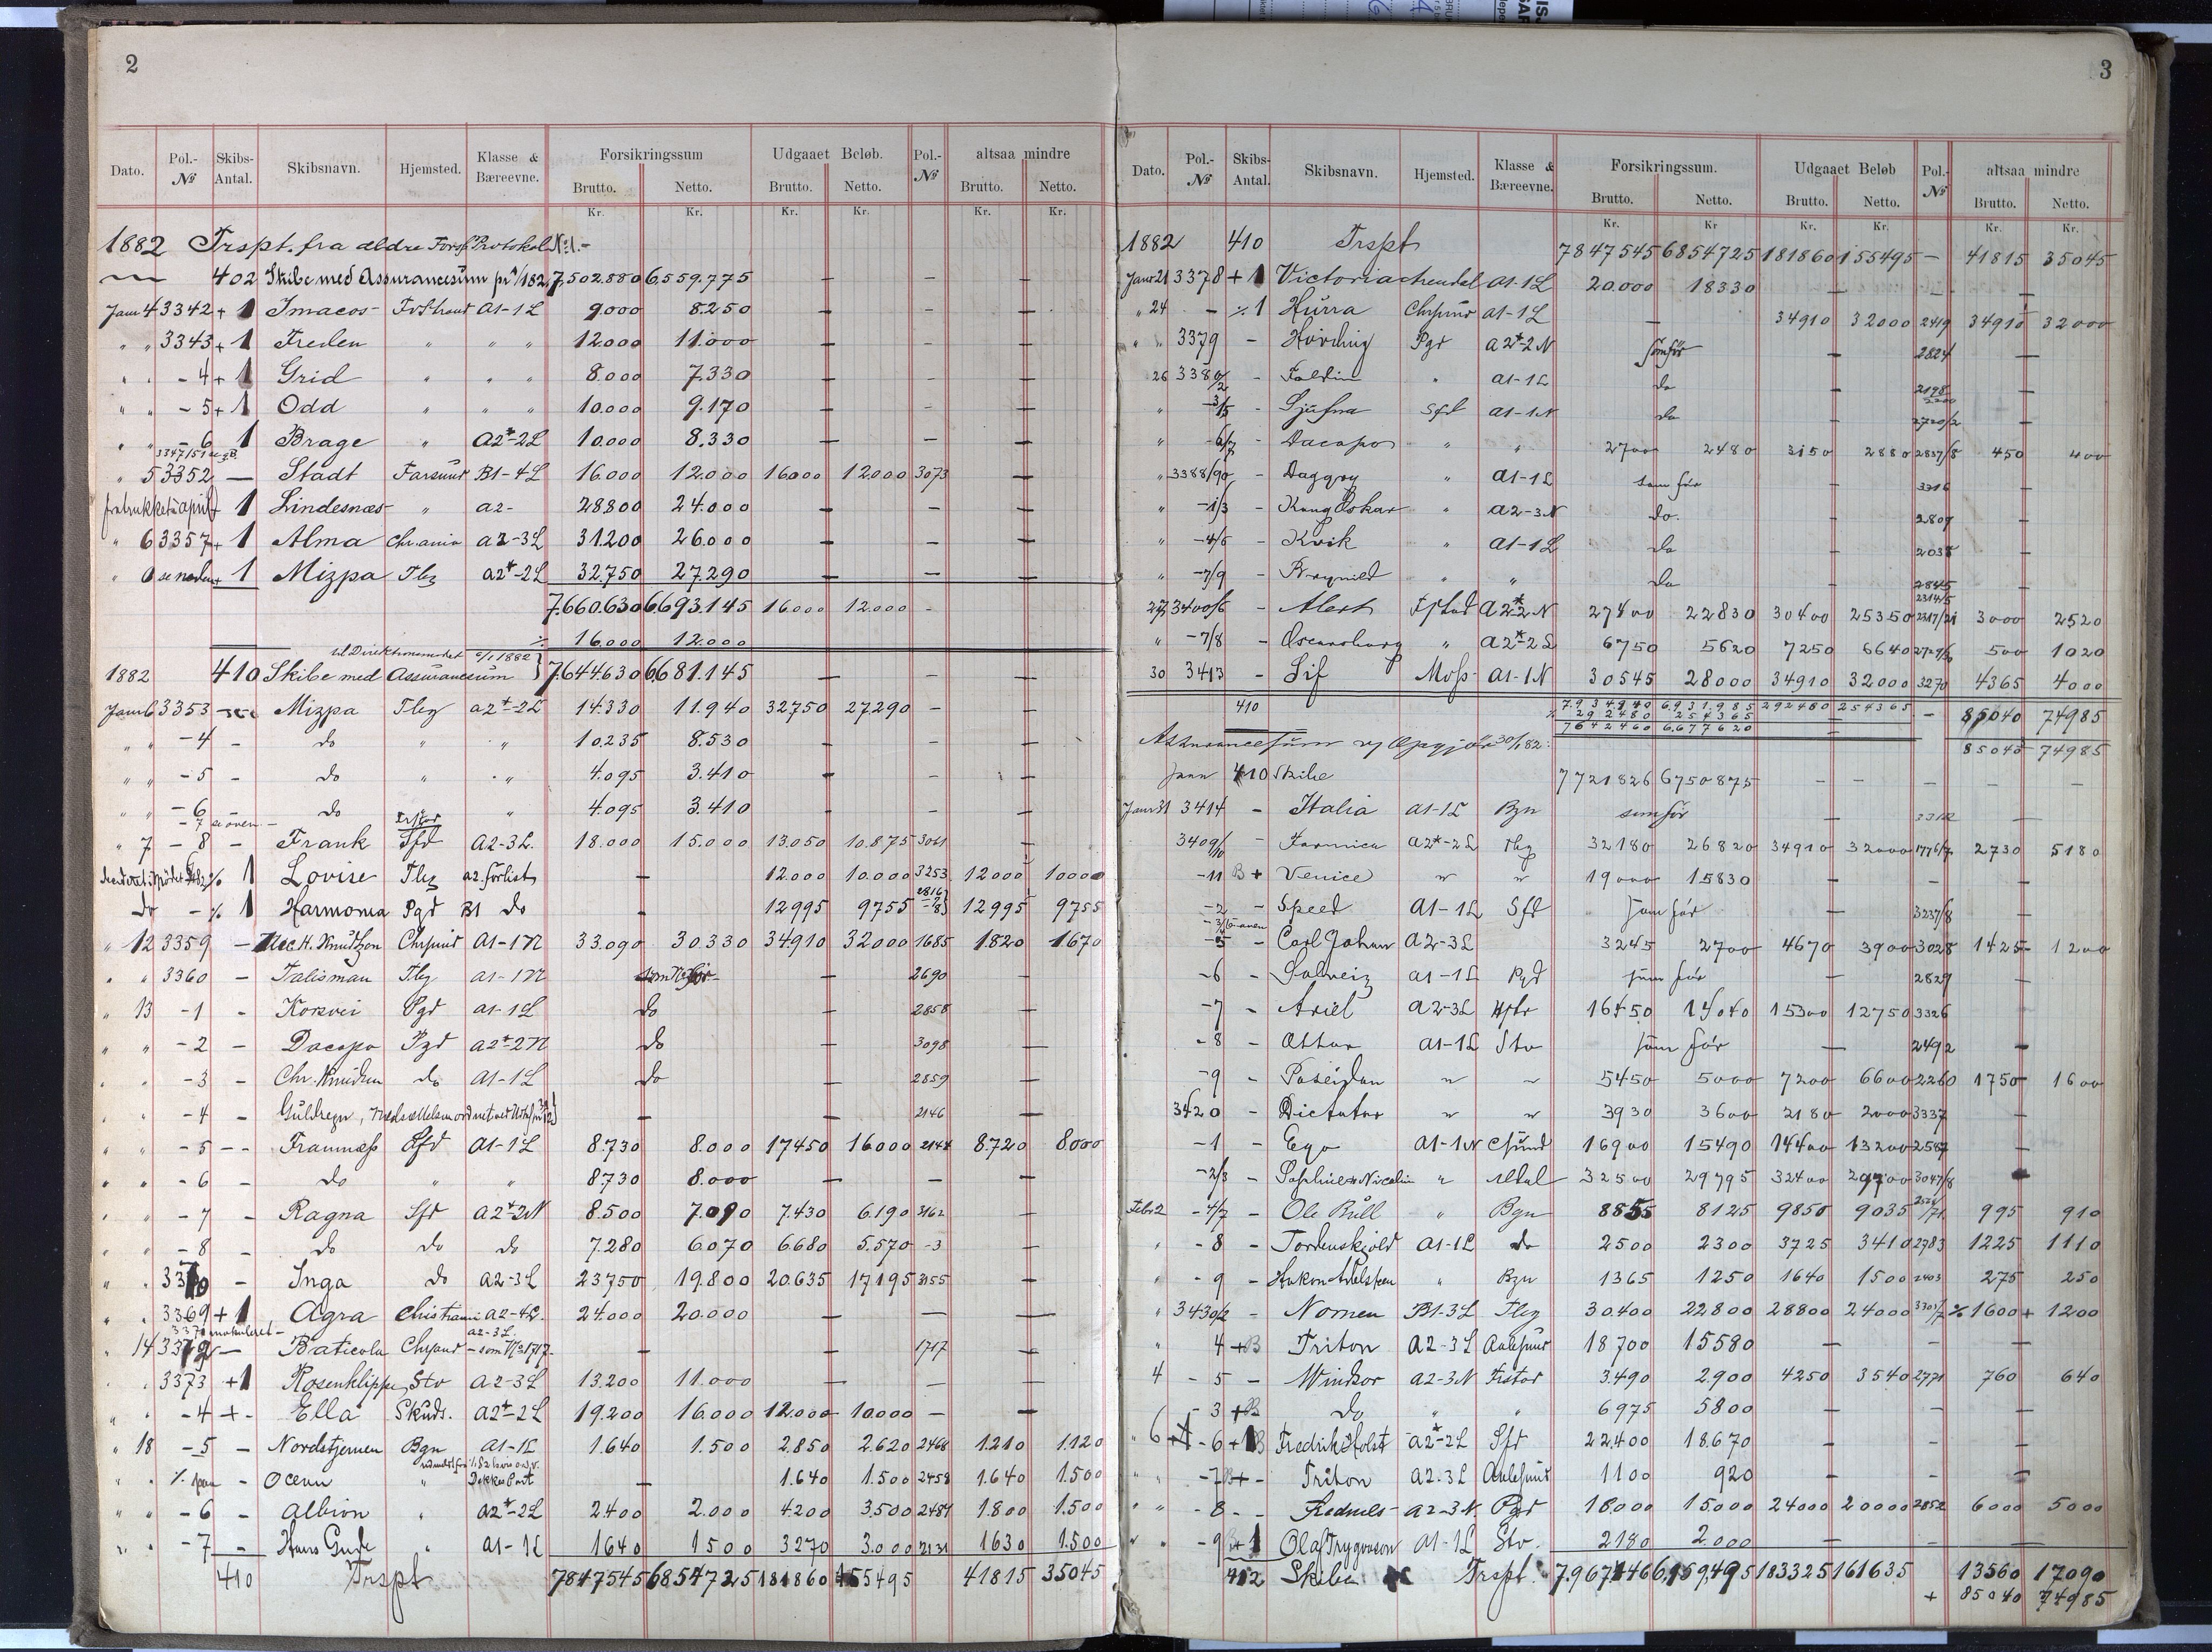 2
Dato. Pol.-№ Skibs-Antal. Skibsnavn. Hjemsted. Klasse & Bæreevne. Forsikringssum Brutto. Netto. Udgaaet Beløb. Brutto. Netto. Pol.-№ altsaa mindre Brutto. Netto.
Kr. Kr. Kr. Kr. Kr. Kr.
1882 Trspt. fra ældre Protokol No 1.-
402 Skibe med Assurancesum pr 1/1 82 7,502.880 6,559.775 — — —
Janr 4 3342 + 1 Imacos - A1-1L 9000 8.250 — — —
" " 3343 + 1 Freden " " " 12000 11.000 — — —
" " - 4 + 1 Grid " " " 8.000 7.330 — — —
" " - 5 + 1 Odd " " " 10.000 9.170 — — —
" " - 6 1 Brage " A2*-2L 10.000 8.330 — — —
" 5 3352 — Stadt Farsund B1-4L 16.000 12.000 16000 12000 3073 —
april 1 Lindesnæs - " A2- 28800 24.000 — — —
" 6 3357 + 1 Alma Chr.ania A2-3L 31.200 26.000 — — —
" 6 se neden + 1 Mizpa Tbg A2*-2L 32.750 27.290 — — —
7.660.630 6.693.145 16.000 12.000 -
% 16.000 12.000
1882 410 Skibe med Assurancesum } 7.644.630 6.681.145 — — —
Janr 6 3353 Mizpa Tbg A2*-2L 14.330 11.940 32750 27290 - —
" " - 4 - do " " 10.235 8.530 — — —
" " - 5 - do " " 4.095 3.410 — — —
" " - 6 - do " 4.095 3.410 — — —
- 7 se oven -
" 7 - 8 - Frank Sfd A2-3L. 18.000 15.000 13.050 10.875 3061 —
% 1 Lovise Tbg A2. forlist — 12.000 10.000 3253 12000 10000
do - % 1 Harmonia Pgd B1 do — 12995 9755 2816 12995 9755
" 12 3359 - H. Knudtzon Chrsund A1-1N 33.090 30.330 34910 32000 1685 1.820 1670
" " 3360 - Talisman Tbg A1-1N som før — 2690 —
" 13 - 1 - Korsvei Pgd A1-1L do — 2858 —
" " - 2 - Dacapo Pgd A2*-2N do — 3098 —
" " - 3 - Chr. Knudsen do A1-1L do — 2859 —
" " - 4 - Guldregn, — — 2146 —
" " - 5 - Framnæss Sfd A1-1L 8.730 8.000 17450 16000 2144 8.720 8.000
" " - 6 - do " " 8.730 8.000 — — —
" " - 7 - Ragna Sfd A2*-2N 8.500 7.090 7.430 6.190 3162 —
" " - 8 - do do do 7.280 6.070 6.680 5.570 -3 —
" " 3370 - Inga do A2-3L 23.750 19.800 20.635 17195 3155 —
" " 3369 + 1 Agra Christiania A2-4L. 24.000 20.000 — — —
" 14 3372 - Baticola Chrsand - som No 1717 - — — 1717 —
" " 3373 + 1 Rosenklippe Stv A2-3L 13.200 11.000 — — —
" " - 4 + - Ella Skuds. A2*-2L 19.200 16.000 12.000 10.000 — —
" 18 - 5 - Nordstjernen Bgn A1-1L 1.640 1.500 2.850 2.620 2468 1.210 1.120
" " % - Ocean " — 1.640 1.500 2458 1.640 1.500
" " - 6 - Albion " A2*-2L 2400 2.000 4.200 3500 2484 1.800 1.500
" " - 7 - Hans Gude " A1-1L 1640 1500 3270 3.000 2131 1630 1.500
410 Trspt 7847545 6854725 181860 155495 41815 35045
3
Dato. Pol.-№ Skibs-Antal. Skibsnavn. Hjemsted. Klasse & Bæreevne. Forsikringssum. Brutto. Netto. Udgaaet Beløb Brutto. Netto. Pol.-№ altsaa mindre Brutto. Netto.
Kr. Kr Kr. Kr. Kr. Kr.
1882 410 Trspt 7847545 6854725 181860 155495 - 41815 35045
Janr 21 3378 + 1 Victoria Arendal A1-1L 20.000 18330 — — —
" 24 - % 1 Hurra Chrsund A1-1L — 34910 32000 2419 34910 32000
" " 3379 - Hövding Pgd A2*-2N som før — 2824 —
26 3380/2 - Foldin " A1-1L do — 2198 —
" -3/5 - Gjufna Sfd A1-1N do — 2720/2 —
" -6/7 - Dacapo " " 2700 2480 3150 2880 2837/8 450 400
" 3388/90 - Daggry " A1-1L som før — 3316 —
" -1/3 - Kong Oskar " A2-3N do. — 2809 —
" -4/6 - Kvik " A1-1L do — 2038 —
" -7/9 - Brynild " " do — 2845 —
27 3400/6 - Alert Fstad A2*-2N 27400 22830 30400 25350 2317/21 3000 2520
" -7/8 - Oscarsborg " A2*-2L 6750 5620 7250 6640 500 1020
30 3413 - Lif Moss - A1-1N 30545 28000 34910 32000 3270 4365 4000
410 7934940 6931985 292480 254365 - 85040 74985
% 292480 254365
7642460 6677620 — 85040 74985
Assurancesum 30/1 82:
Janr 410 Skibe 7721826 6750875 - - - -
Janr 31 3414 - Italia A1-1L Bgn som før — 3312 —
3409/10 - Formica A2*-2L Tbg 32180 26820 34910 32000 1776/7 2730 5180
-11 B + Venice " " 19000 15830 — — —
-2 - Speed A1-1L Sfd som før — 3237/8 —
-5 - Carl Johan A2-3L 3245 2700 4670 3900 3028 1425 1200
-6 - Solveig A1-1L Pgd som før — 2829 —
-7 - Ariel A2-3L 16450 14040 15300 12750 3326
-8 - Ottar A1-1L Stv som før — 2492 —
-9 - Poseidon " " 5450 5000 7200 6600 2260 1750 1600
3420 - Dictator " " 3930 3600 2180 2000 3337 —
-1 - Ego A1-1N Csund 16900 15490 14400 13200 2587 —
-2/3 - " 32500 29795 32400 29700 3047/8
Febr 2 -4/7 - Ole Bull " Bgn 8855 8125 9850 9035 995 910
" - 8 - Tordenskjold A1-1L do 2500 2300 3725 3410 2783 1225 1110
" - 9 - Hakon Adelsteen " Bgn 1365 1250 1640 1500 2403 275 250
" 3430/2 - Nornen B1-3L Tbg 30.400 22800 28800 24000 % 1600 + 1200
" 4 + B Triton A2-3L Aalesund 18700 15580 — — —
4 - 5 - Windsor A2-3N Fstad 3.490 2900 4250 3540 2771 760 640
- 3 + B do " " 6975 5800 — — —
" 6 - 6 + 1 B Fredrik Holst A2*-2L Sfd 22400 18670 — — —
" " - 7 B + - Triton A2-3L Aalesund 1100 920 — — —
" " - 8 - - A2-3N. Pgd 18000 15000 24000 20000 2852 6000 5000
" " - 9 + 1 Olaf Trygvason A1-1L Stv. 2180 2.000 — — —
412 Skibe Trspt. 183325 161635 13560 17090
+ 85040 74985